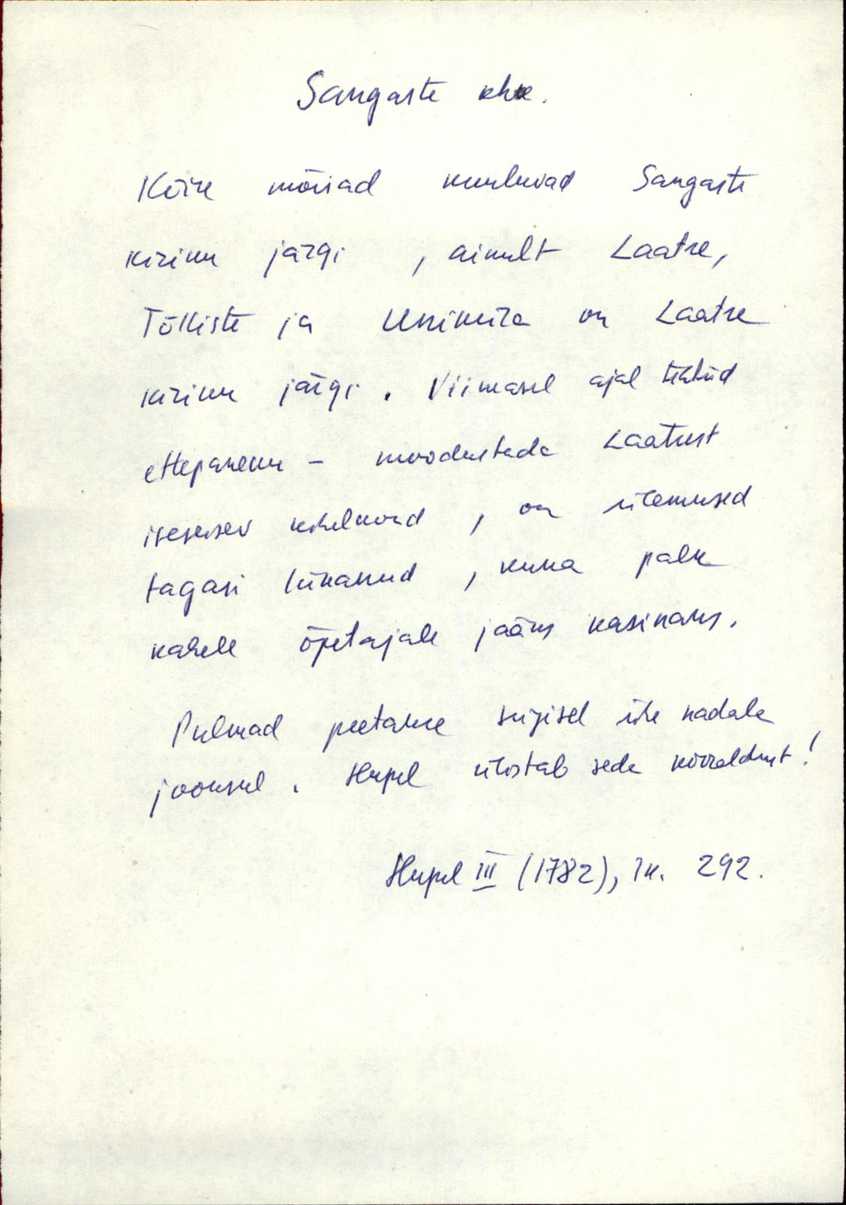 Sangaste khk.
Kõik mõisad kuuluvad Sangaste
kiriku järgi, ainult Laatre,
Tõlliste ja Unikülla on Laatre
kiriku järgi. Viimasel ajal tehtud
ettepaneku - moodustada Laatrest
iseseisev kihelkond, on ülemused
tagasi lükanud, kuna palk
kahele õpetajale jääks kasinaks.
Pulmad peetakse sügisel ühe nädala
jooksul. Hupel ülistab seda korraldust!
Hupel III (1782), lk. 292.